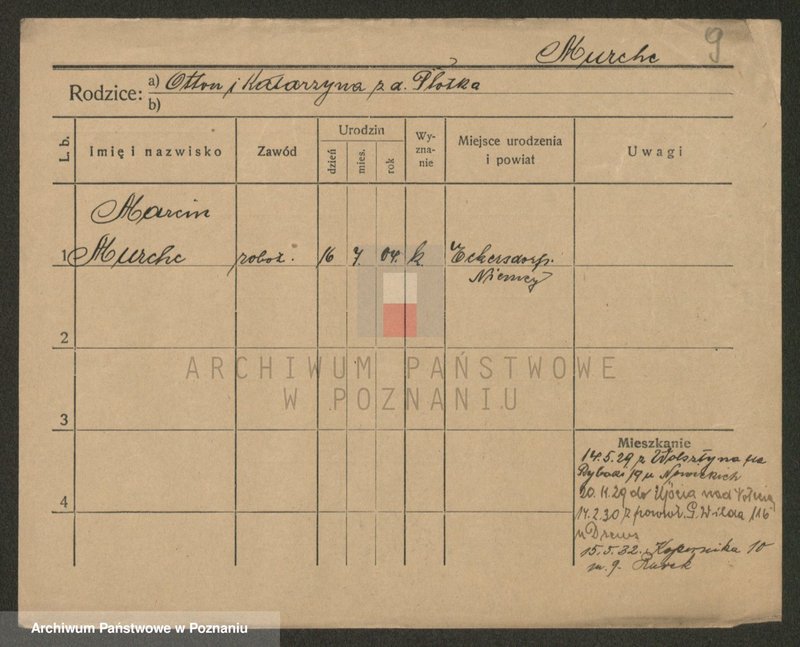 9
Murche
Rodzice: a) Otton i Katarzyna z d. Plotka
b)
L. b.
Imię i nazwisko
Zawód
Urodzin
dzień
mies.
rok
Wy-
zna-
nie
Miejsce urodzenia
i powiat
Uwagi
Marcin
1 Murche robot. 16 7. 04. k. Eckersdorf.
Niemcy
2
ARCHIWUM PAŃSTWOWE
W POZNANIU
3
4
Mieszkanie
14.5.29 z Wolsztyna na
19 u Nowickich
20.11.29 do Ujścia nad Notecią
14.2.30 z powrot. G. Wilda 116
u Drews
15.5.32. Kopernika 10
m. 9. Kurek
Archiwum Państwowe w Poznaniu